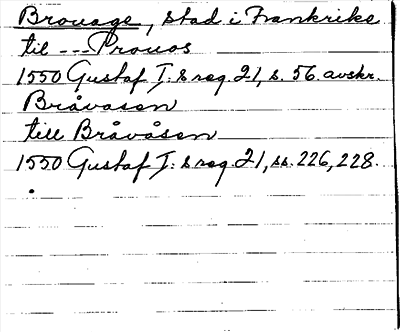 Brouage, stad i Frankrike
til -- Prouos
1550 Gustaf I:s reg. 21, s. 56. avskr.
Bråvasen
till Bråvåsen
1550 Gustaf I:s reg. 21, ss. 226, 228.